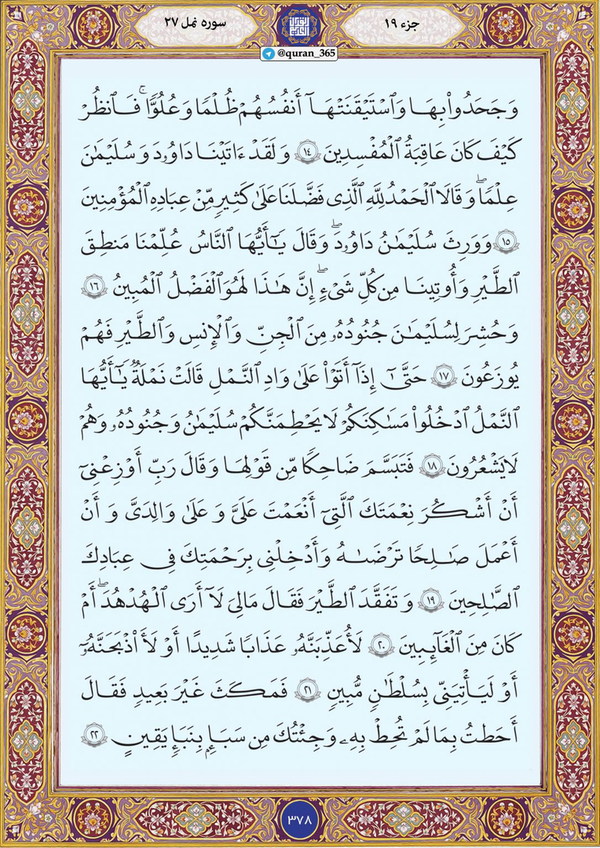 سوره نمل ۲۷
جزء ۱۹
@quran_365
وَجَحَدُوا۟ بِهَا وَٱسْتَيْقَنَتْهَآ أَنفُسُهُمْ ظُلْمًا وَعُلُوًّا ۚ فَٱنظُرْ
كَيْفَ كَانَ عَاقِبَةُ ٱلْمُفْسِدِينَ ۝١٤ وَلَقَدْ ءَاتَيْنَا دَاوُۥدَ وَسُلَيْمَٰنَ
عِلْمًا ۖ وَقَالَا ٱلْحَمْدُ لِلَّهِ ٱلَّذِى فَضَّلَنَا عَلَىٰ كَثِيرٍ مِّنْ عِبَادِهِ ٱلْمُؤْمِنِينَ
۝١٥ وَوَرِثَ سُلَيْمَٰنُ دَاوُۥدَ ۖ وَقَالَ يَٰٓأَيُّهَا ٱلنَّاسُ عُلِّمْنَا مَنطِقَ
ٱلطَّيْرِ وَأُوتِينَا مِن كُلِّ شَىْءٍ ۖ إِنَّ هَٰذَا لَهُوَ ٱلْفَضْلُ ٱلْمُبِينُ ۝١٦
وَحُشِرَ لِسُلَيْمَٰنَ جُنُودُهُۥ مِنَ ٱلْجِنِّ وَٱلْإِنسِ وَٱلطَّيْرِ فَهُمْ
يُوزَعُونَ ۝١٧ حَتَّىٰٓ إِذَآ أَتَوْا۟ عَلَىٰ وَادِ ٱلنَّمْلِ قَالَتْ نَمْلَةٌ يَٰٓأَيُّهَا
ٱلنَّمْلُ ٱدْخُلُوا۟ مَسَٰكِنَكُمْ لَا يَحْطِمَنَّكُمْ سُلَيْمَٰنُ وَجُنُودُهُۥ وَهُمْ
لَا يَشْعُرُونَ ۝١٨ فَتَبَسَّمَ ضَاحِكًا مِّن قَوْلِهَا وَقَالَ رَبِّ أَوْزِعْنِىٓ
أَنْ أَشْكُرَ نِعْمَتَكَ ٱلَّتِىٓ أَنْعَمْتَ عَلَىَّ وَعَلَىٰ وَٰلِدَىَّ وَأَنْ
أَعْمَلَ صَٰلِحًا تَرْضَىٰهُ وَأَدْخِلْنِى بِرَحْمَتِكَ فِى عِبَادِكَ
ٱلصَّٰلِحِينَ ۝١٩ وَتَفَقَّدَ ٱلطَّيْرَ فَقَالَ مَالِىَ لَآ أَرَى ٱلْهُدْهُدَ ۖ أَمْ
كَانَ مِنَ ٱلْغَآئِبِينَ ۝٢٠ لَأُعَذِّبَنَّهُۥ عَذَابًا شَدِيدًا أَوْ لَأَا۟ذْبَحَنَّهُۥٓ
أَوْ لَيَأْتِيَنِّى بِسُلْطَٰنٍ مُّبِينٍ ۝٢١ فَمَكَثَ غَيْرَ بَعِيدٍ فَقَالَ
أَحَطتُ بِمَا لَمْ تُحِطْ بِهِۦ وَجِئْتُكَ مِن سَبَإٍ بِنَبَإٍ يَقِينٍ ۝٢٢
۳۷۸